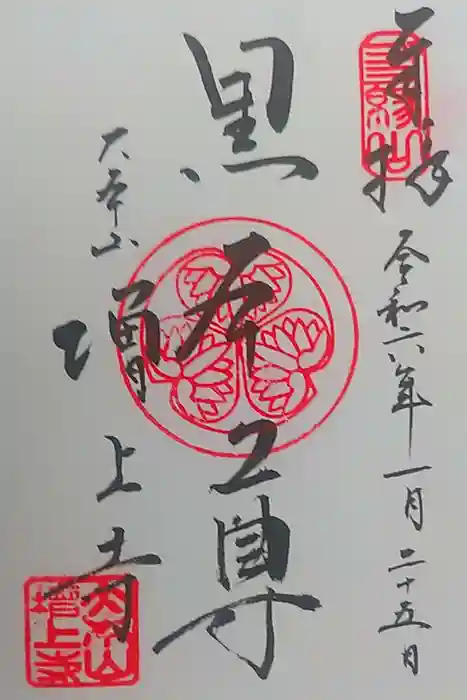 奉拝
令和六年一月二十五日
三縁山
黒本尊
大本山
増上寺
大本山増上寺